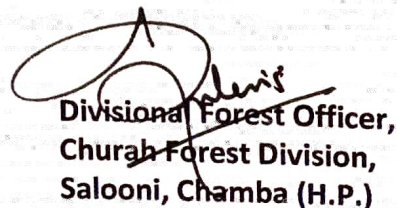 Divisional Forest Officer,
Churah Forest Division,
Salooni, Chamba (H.P.)